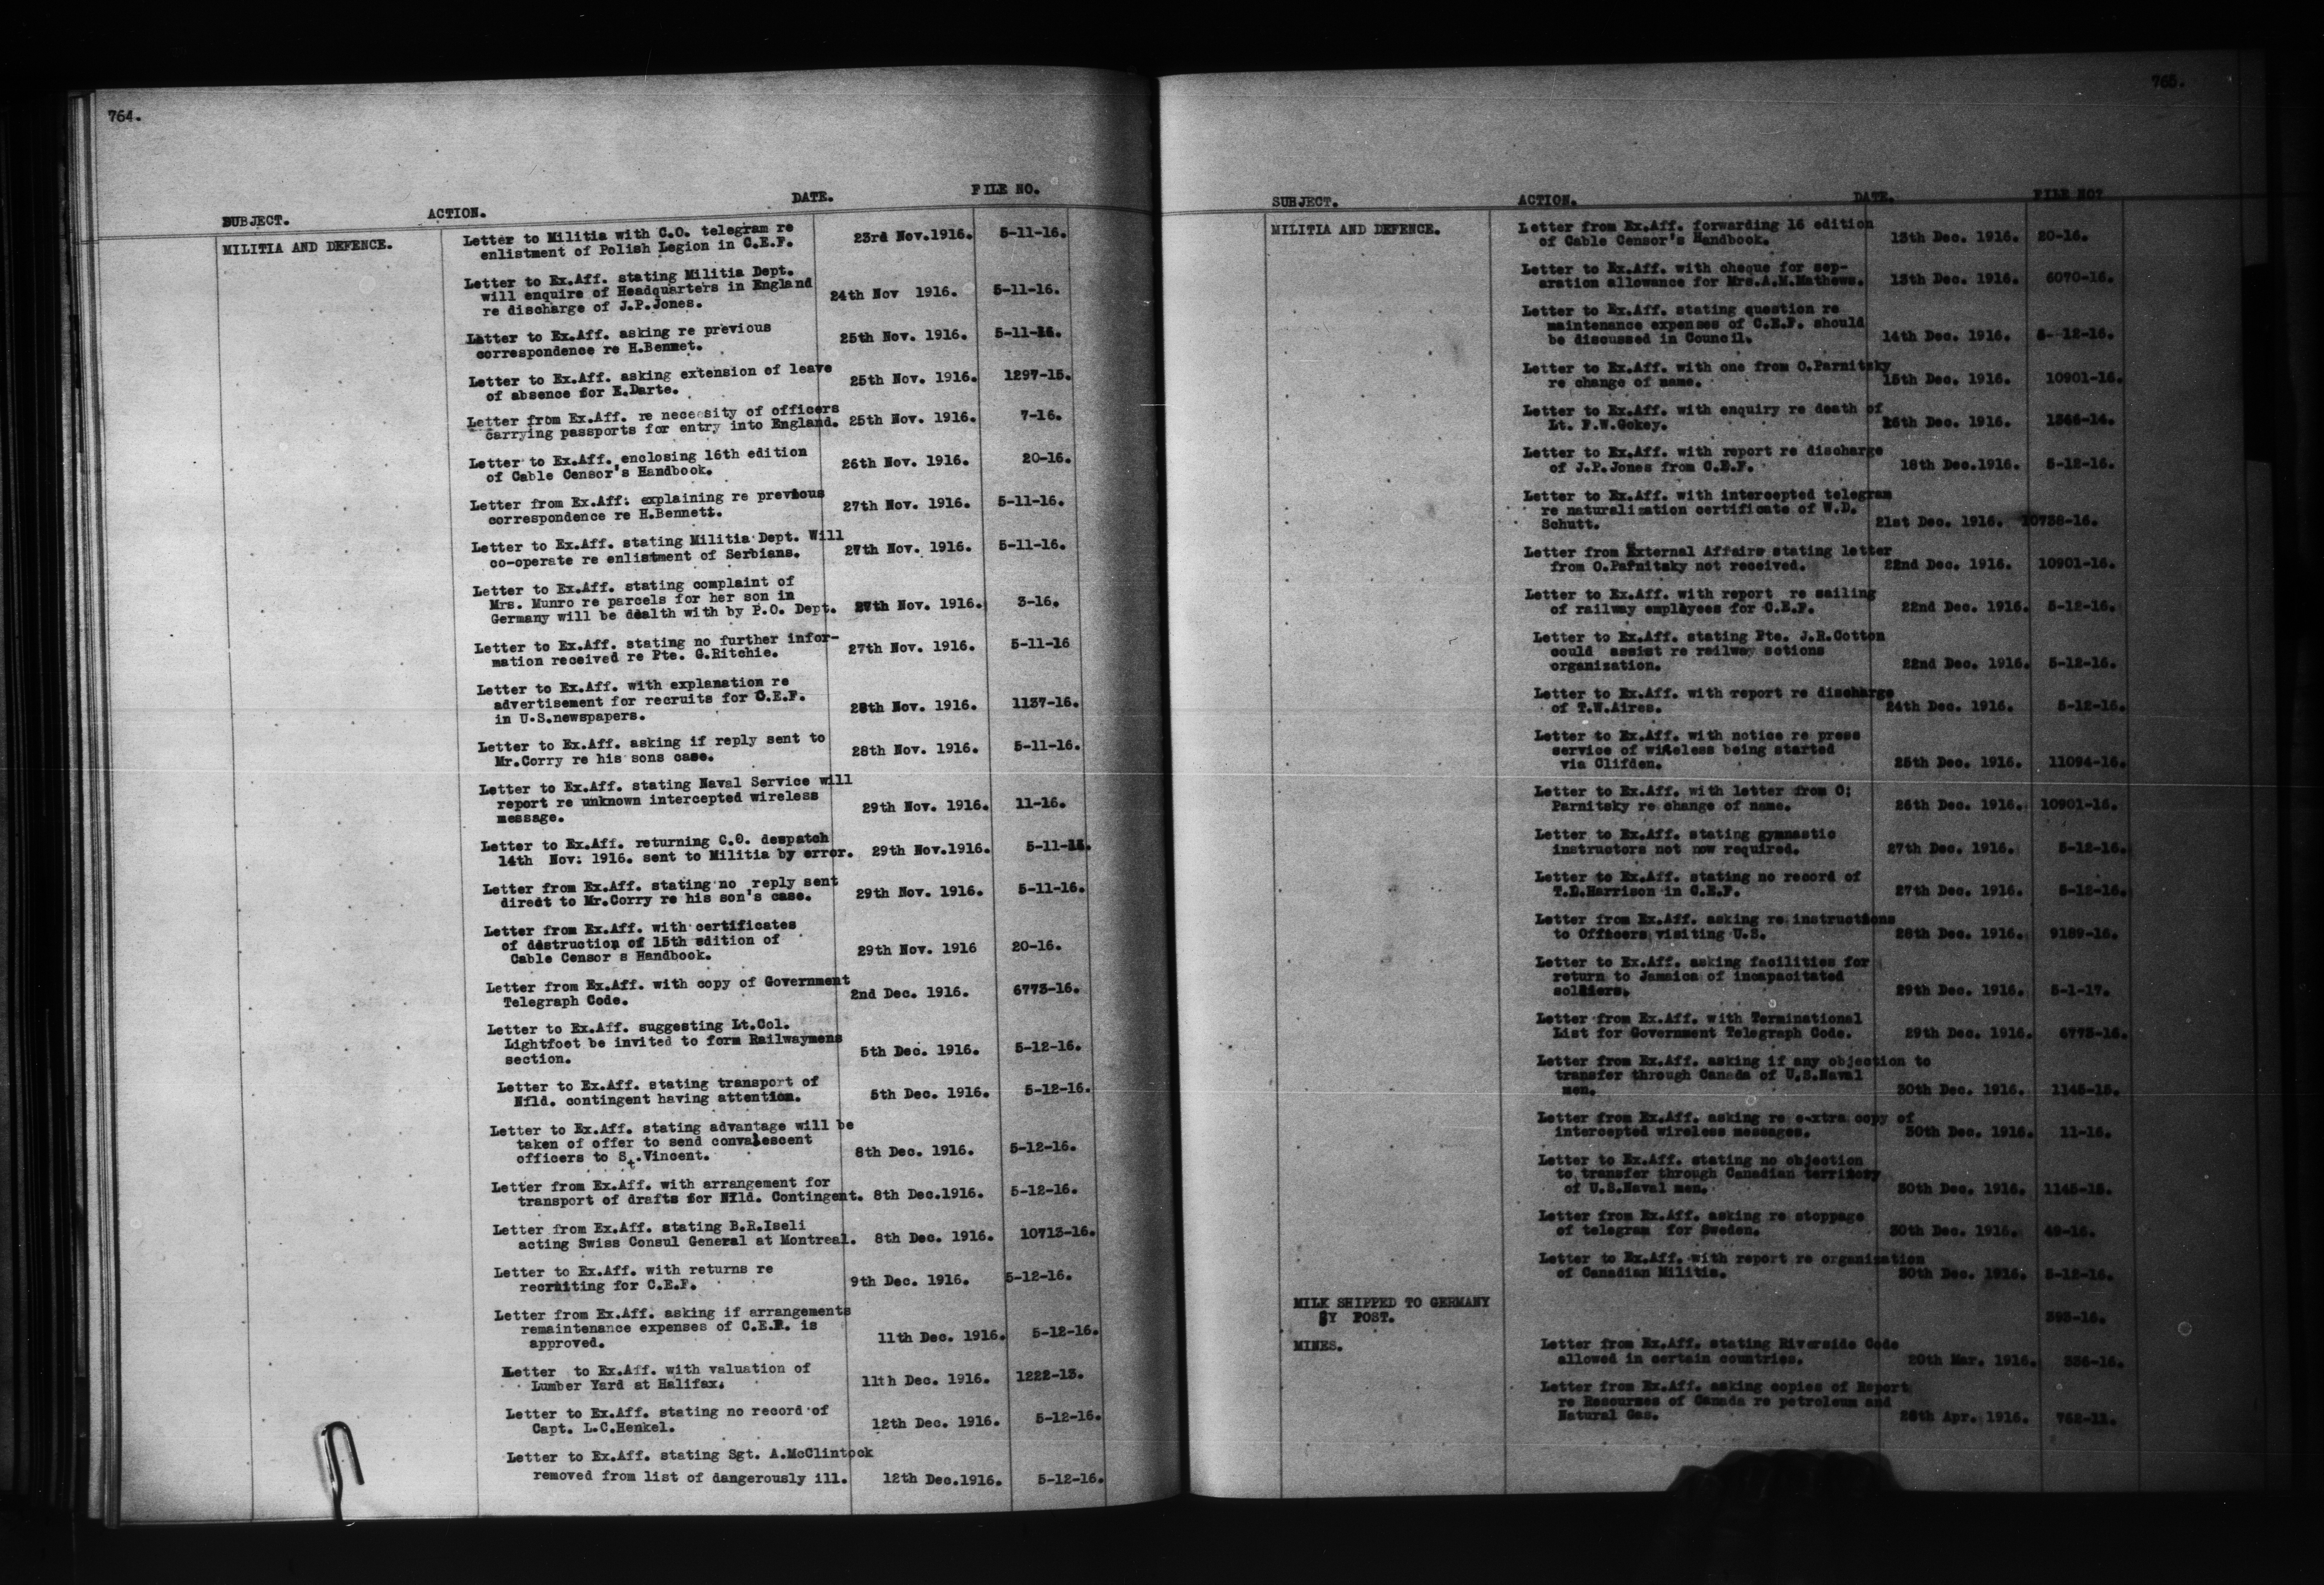 764.
SUBJECT. ACTION. DATE. FILE NO.
MILITIA AND DEFENCE. Letter to Militia with C.O. telegram re
enlistment of Polish Legion in C.E.F. 23rd Nov.1916. 5-11-16.
Letter to Ex.Aff. stating Militia Dept.
will enquire of Headquarters in England
re discharge of J.P.Jones. 24th Nov 1916. 5-11-16.
Letter to Ex.Aff. asking re previous
correspondence re H.Bennet. 25th Nov. 1916. 5-11-16.
Letter to Ex.Aff. asking extension of leave
of absence for E.Darte. 25th Nov. 1916. 1297-15.
Letter from Ex.Aff. re necessity of officers
carrying passports for entry into England. 25th Nov. 1916. 7-16.
Letter to Ex.Aff. enclosing 16th edition
of Cable Censor's Handbook. 26th Nov. 1916. 20-16.
Letter from Ex.Aff. explaining re previous
correspondence re H.Bennett. 27th Nov. 1916. 5-11-16.
Letter to Ex.Aff. stating Militia Dept. Will
co-operate re enlistment of Serbians. 27th Nov. 1916. 5-11-16.
Letter to Ex.Aff. stating complaint of
Mrs. Munro re parcels for her son in
Germany will be dealth with by P.O. Dept. 27th Nov. 1916. 3-16.
Letter to Ex.Aff. stating no further infor-
mation received re Pte. G.Ritchie. 27th Nov. 1916. 5-11-16
Letter to Ex.Aff. with explanation re
advertisement for recruits for C.E.F.
in U.S.newspapers. 28th Nov. 1916. 1137-16.
Letter to Ex.Aff. asking if reply sent to
Mr.Corry re his sons case. 28th Nov. 1916. 5-11-16.
Letter to Ex.Aff. stating Naval Service will
report re unknown intercepted wireless
message. 29th Nov. 1916. 11-16.
Letter to Ex.Aff. returning C.O. despatch
14th Nov. 1916. sent to Militia by error. 29th Nov.1916. 5-11-16.
Letter from Ex.Aff. stating no reply sent
direct to Mr.Corry re his son's case. 29th Nov. 1916. 5-11-16.
Letter from Ex.Aff. with certificates
of destruction of 15th edition of
Cable Censor s Handbook. 29th Nov. 1916 20-16.
Letter from Ex.Aff. with copy of Government
Telegraph Code. 2nd Dec. 1916. 6773-16.
Letter to Ex.Aff. suggesting Lt.Col.
Lightfoot be invited to form Railwaymens
section. 5th Dec. 1916. 5-12-16.
Letter to Ex.Aff. stating transport of
Nfld. contingent having attention. 5th Dec. 1916. 5-12-16.
Letter to Ex.Aff. stating advantage will be
taken of offer to send convalescent
officers to St.Vincent. 8th Dec. 1916. 5-12-16.
Letter from Ex.Aff. with arrangement for
transport of drafts for Nfld. Contingent. 8th Dec.1916. 5-12-16.
Letter from Ex.Aff. stating B.R.Iseli
acting Swiss Consul General at Montreal. 8th Dec. 1916. 10713-16.
Letter to Ex.Aff. with returns re
recruiting for C.E.F. 9th Dec. 1916. 5-12-16.
Letter from Ex.Aff. asking if arrangements
remaintenance expenses of C.E.F. is
approved. 11th Dec. 1916. 5-12-16.
Letter to Ex.Aff. with valuation of
Lumber Yard at Halifax. 11th Dec. 1916. 1222-13.
Letter to Ex.Aff. stating no record of
Capt. L.C.Henkel. 12th Dec. 1916. 5-12-16.
Letter to Ex.Aff. stating Sgt. A.McClintock
removed from list of dangerously ill. 12th Dec.1916. 5-12-16.
765.
SUBJECT. ACTION. DATE. FILE NO?
MILITIA AND DEFENCE. Letter from Ex.Aff. forwarding 16 edition
of Cable Censor's Handbook. 13th Dec. 1916. 20-16.
Letter to Ex.Aff. with cheque for sep-
aration allowance for Mrs.A.M.Mathews. 13th Dec. 1916. 6070-16.
Letter to Ex.Aff. stating question re
maintenance expenses of C.E.F. should
be discussed in Council. 14th Dec. 1916. 5- 12-16.
Letter to Ex.Aff. with one from O.Parnitsky
re change of name. 15th Dec. 1916. 10901-16.
Letter to Ex.Aff. with enquiry re death of
Lt. F.W.Gokey. Dec. 1916.
Letter to Ex.Aff. with report re discharge
of J.P.Jones from C.E.F. 18th Dec.1916. 5-12-16.
Letter to Ex.Aff. with intercepted telegram
re naturalization certificate of W.D.
Schutt. 21st Dec. 1916. 10738-16.
Letter from External Affairs stating letter
from O.Parnitsky not received. 22nd Dec. 1916. 10901-16.
Letter to Ex.Aff. with report re sailing
of railway employees for C.E.F. 22nd Dec. 1916. 5-12-16.
Letter to Ex.Aff. stating Pte. J.R.Cotton
could assist re railway sctions
organization. 22nd Dec. 1916. 5-12-16.
Letter to Ex.Aff. with report re discharge
of T.W.Aires. 24th Dec. 1916. 5-12-16.
Letter to Ex.Aff. with notice re press
service of wireless being started
via Clifden. 25th Dec. 1916. 11094-16.
Letter to Ex.Aff. with letter from O;
Parnitsky re change of name. 26th Dec. 1916. 10901-16.
Letter to Ex.Aff. stating gymnastic
instructors not now required. 27th Dec. 1916. 5-12-16.
Letter to Ex.Aff. stating no record of
T.D.Harrison in C.E.F. 27th Dec. 1916. 5-12-16.
Letter from Ex.Aff. asking re instructions
to Officers visiting U.S. 28th Dec. 1916. 9189-16.
Letter to Ex.Aff. asking facilities for
return to Jamaica of incapacitated
soldiers. 29th Dec. 1916. 5-1-17.
Letter from Ex.Aff. with Terminational
List for Government Telegraph Code. 29th Dec. 1916. 6773-16.
Letter from Ex.Aff. asking if any objection to
transfer through Canada of U.S.Naval
men. 30th Dec. 1916. 1145-15.
Letter from Ex.Aff. asking re e-xtra copy of
intercepted wireless messages. 30th Dec. 1916. 11-16.
Letter to Ex.Aff. stating no objection
to transfer through Canadian territory
of U.S.Naval men. 30th Dec. 1916. 1145-15.
Letter from Ex.Aff. asking re stoppage
of telegram for Sweden. 30th Dec. 1916. 49-16.
Letter to Ex.Aff. with report re organization
of Canadian Militia. 30th Dec. 1916. 5-12-16.
MILK SHIPPED TO GERMANY
BY POST. 393-16.
MINES. Letter from Ex.Aff. stating Riverside Code
allowed in certain countries. 20th Mar. 1916. 336-16.
Letter from Ex.Aff. asking copies of Report
re Resourses of Canada re petroleum and
Natural Gas. 26th Apr. 1916. 762-11.